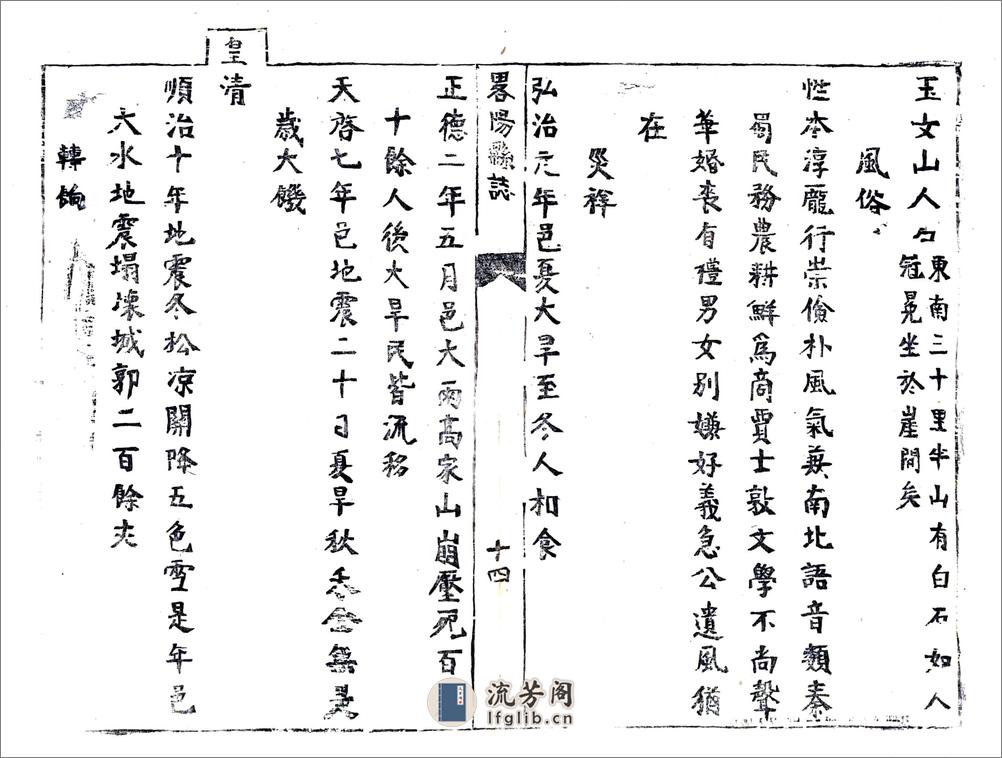 玉女山人勺東南三十里半山有白石如人
冠晃坐於崖間矣
風俗
性本淳龐行崇儉朴風氣兼南北語音類秦
蜀民務農耕鮮為商賈士敦文學不尚聲
華婚喪有禮男女別嫌好義急公遺風猶
在
災祥
弘治元年邑夏大旱至冬人相食
畧陽縣誌
十四
正德二年五月邑大雨高家山崩壓死百
十餘人後大旱民皆流移
天啓七年邑地震二十日夏旱秋禾
歲大饑
皇清
順治十年地震冬松凉關降五色雪是年邑
大水地震塌壞城郭二百餘丈
轉餉
流芳阁
lfglib.cn